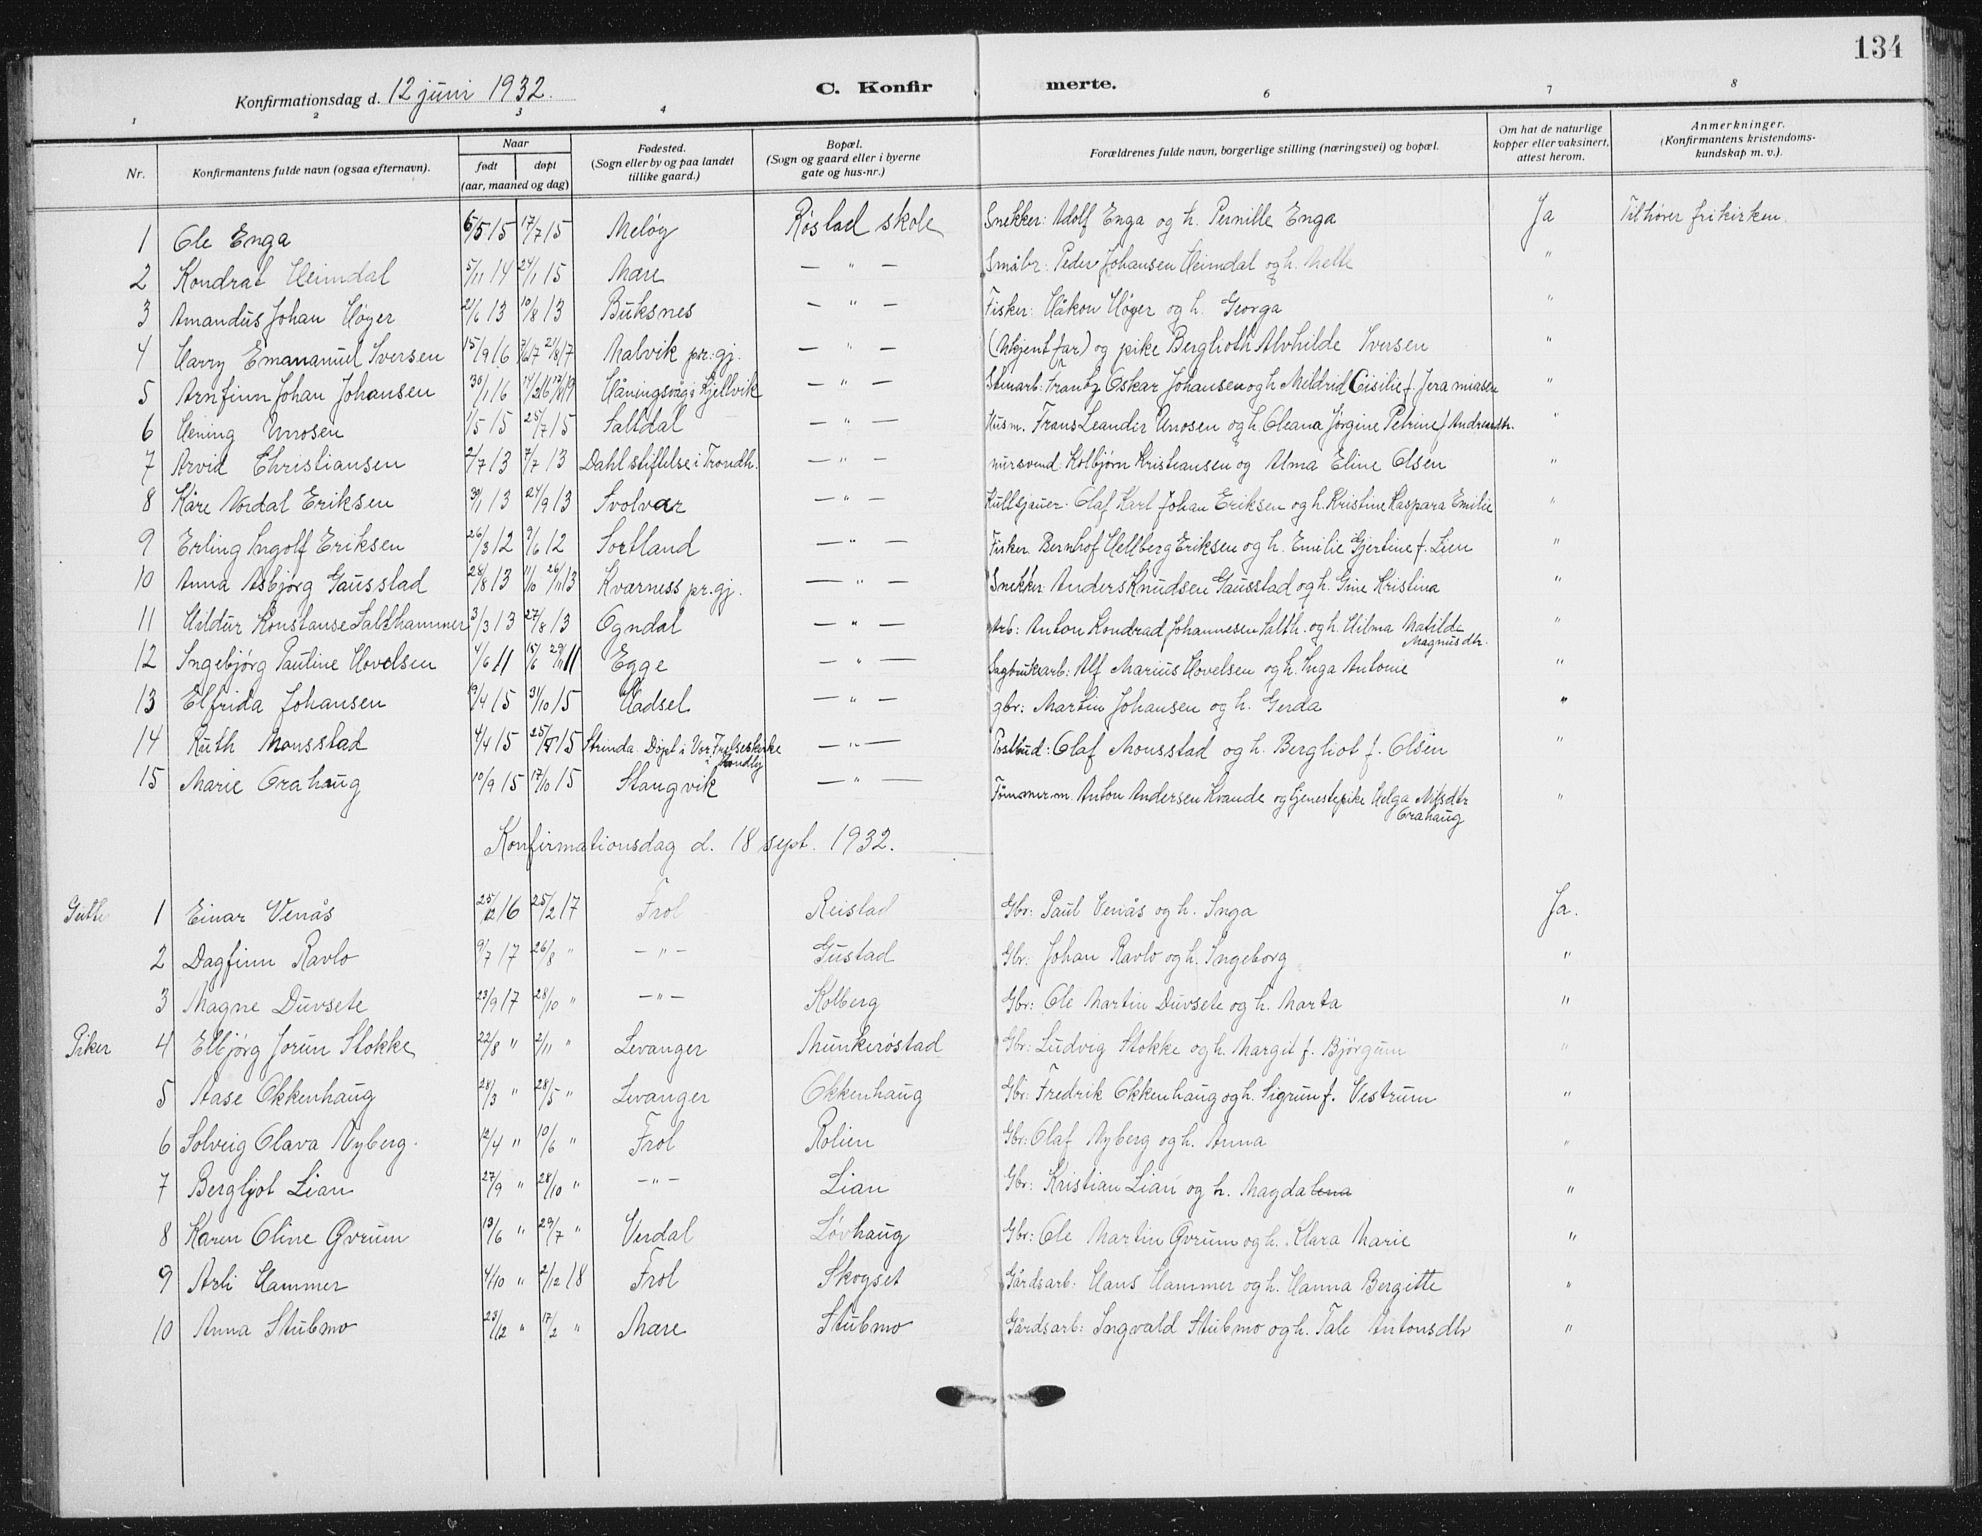 134
Konfirmationsdag d. 12 juni 1932. C. Konfir merte.
1 2 3 4 6 7 8
Nr. Konfirmantens fulde navn (ogsaa efternavn). Naar født døpt (aar, maaned og dag) Fødested. (Sogn eller by og paa landet tillike gaard.) Bopæl. (Sogn og gaard eller i byerne gate og hus-nr.) Forældrenes fulde navn, borgerlige stilling (næringsvei) og bopæl. Om hat de naturlige kopper eller vaksinert, attest herom. Anmerkninger. (Konfirmantens kristendoms- kundskap m. v.).
1 Ole Enga 6/5 15 17/7 15 Meløy Røstad skole Snekker: Adolf Enga og h. Pernille Enga Ja Tilhører frikirken.
2 Kondrat Heimdal 5/11 14 24/1 15 Mare — " — Småbr: Peder Johansen Heimdal og h. Mette "
3 Amandus Johan Høyer 21/6 13 10/8 13 Buksnes — " — Fisker: Håkon Høyer og h. Georga "
4 Harry Emananuel Iversen 15/9 16 Malvik pr: gj. — " — (Ukjent far) og pike Berglioth Alvhilde Iversen "
5 Arnfinn Johan Johansen 30/1 16 Håningsvåg i Kjellvik — " — Stenarb: Frantz Oskar Johansen og h Mildrid Cisilie f. Jeramiasen "
6 Hening Unosen 1/5 15 25/7 15 Saltdal — " — Husm. Frans Leander Unosen og h. Oleana Jørgine Petrine f Andreasdtr. "
7 Arvid Christiansen 2/7 13 7/7 13 Dahl stiftelse i Trondh. — " — mursvend: Kolbjørn Kristiansen og Alma Eline Olsen "
8 Kåre Nordal Eriksen 30/1 13 24/9 13 Svolvær — " — Kullsjauer: Olaf Karl Johan Eriksen og h. Kristine Kaspara Emilie "
9 Erling Ingolf Eriksen 26/3 12 9/6 12 Sortland — " — Fisker. Bernhof Hellberg Eriksen og h. Emilie Gjertine f. Lien "
10 Anna Asbjørg Gausstad 28/8 13 11/10 26/11 13 Kvarness pr: gj. — " — Snekker: Anders Knudsen Gausstad og h. Gine Kristina "
11 Hildur Konstanse Salthammer 3/3 13 27/8 13 Ogndal — " — Arb: Anton Kondrad Johannesen Salth. og h. Hilma Matilde Magnusdtr. "
12 Ingebjørg Pauline Hovelsen 4/6 11 15/6 29/11 11 Egge — " — Sagbruksarb: Alf Marius Hovelsen og h. Inga Antonie "
13 Elfrida Johansen 19/4 15 31/10 15 Hadsel — " — gbr: Martin Johansen og h. Gerda "
14 Ruth Monsstad 4/4 15 15 Strinda. Døpt i Vor Frelseskirke i — " — Postbud: Olaf Monsstad og h. Bergliot f. Olsen "
15 Marie Orahaug 10/9 15 17/10 15 Stangvik — " — Tømmerm. Anton Andersen Kvande og tjenestepike Helga Nilsdtr Orahaug "
Konfirmationsdag d. 18 sept. 1932.
Gutter 1 Einar Venås 25/12 16 25/2 17 Frol Reistad Gbr: Paul Venås og h. Inga Ja.
2 Dagfinn Ravlo 9/7 17 26/8 " — " — Gustad Gbr: Johan Ravlo og h. Ingeborg "
3 Magne Duvsete 23/9 17 28/10 " — " — Kolberg Gbr: Ole Martin Duvsete og h. Marta "
Piker 4 Elbjørg Jorun Stokke 22/8 " 2/11 " Levanger Munkerøstad Gbr: Ludvig Stokke og h. Margit f. Bjørgum "
5 Aase Okkenhaug 28/3 " 28/5 " Levanger Okkenhaug Gbr: Fredrik Okkenhaug og h. Sigrun f. Vestrum "
6 Solveig Olava Nyberg. 12/4 " 10/6 " Frol Rolien Gbr: Olaf Nyberg og h. Anna "
7 Bergljot Lian 27/9 " 28/10 " — " — Lian Gbr: Kristian Lian og h. Magdalena "
8 Karen Oline Øvrum 13/6 " 29/7 " Verdal Løvhaug Gbr: Ole Martin Øvrum og h. Klara Marie "
9 Arli Hammer 4/10 " 2/12 18 Frol Skogset Gårdsarb: Hans Hammer og h. Hanna Bergitte "
10 Anna Stubmo 23/12 " 17/2 " Mare Stubmo Gårdsarb: Ingvald Stubmo og h. Tale Antonsdtr "